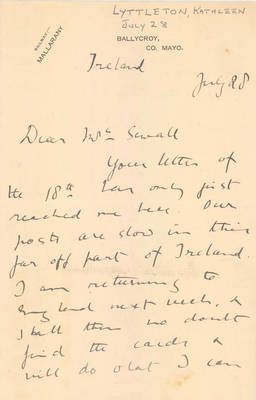 LYTTLETON, KATHLEEN
JULY 28
RAILWAY
MALLARANY
BALLYCROY,
CO. MAYO.
Ireland
July 28
Dear Mrs Sewall
Your letter of
the 18th has only just
reached me here. Our
posts are slow in this
far off part of Ireland.
I am returning to
England next week, &
shall then no doubt
find the cards &
will do what I can